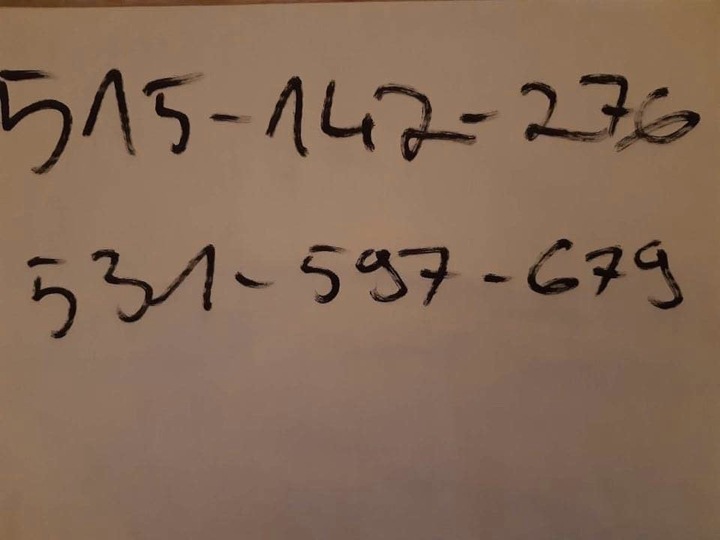 515-142-276
531-597-679